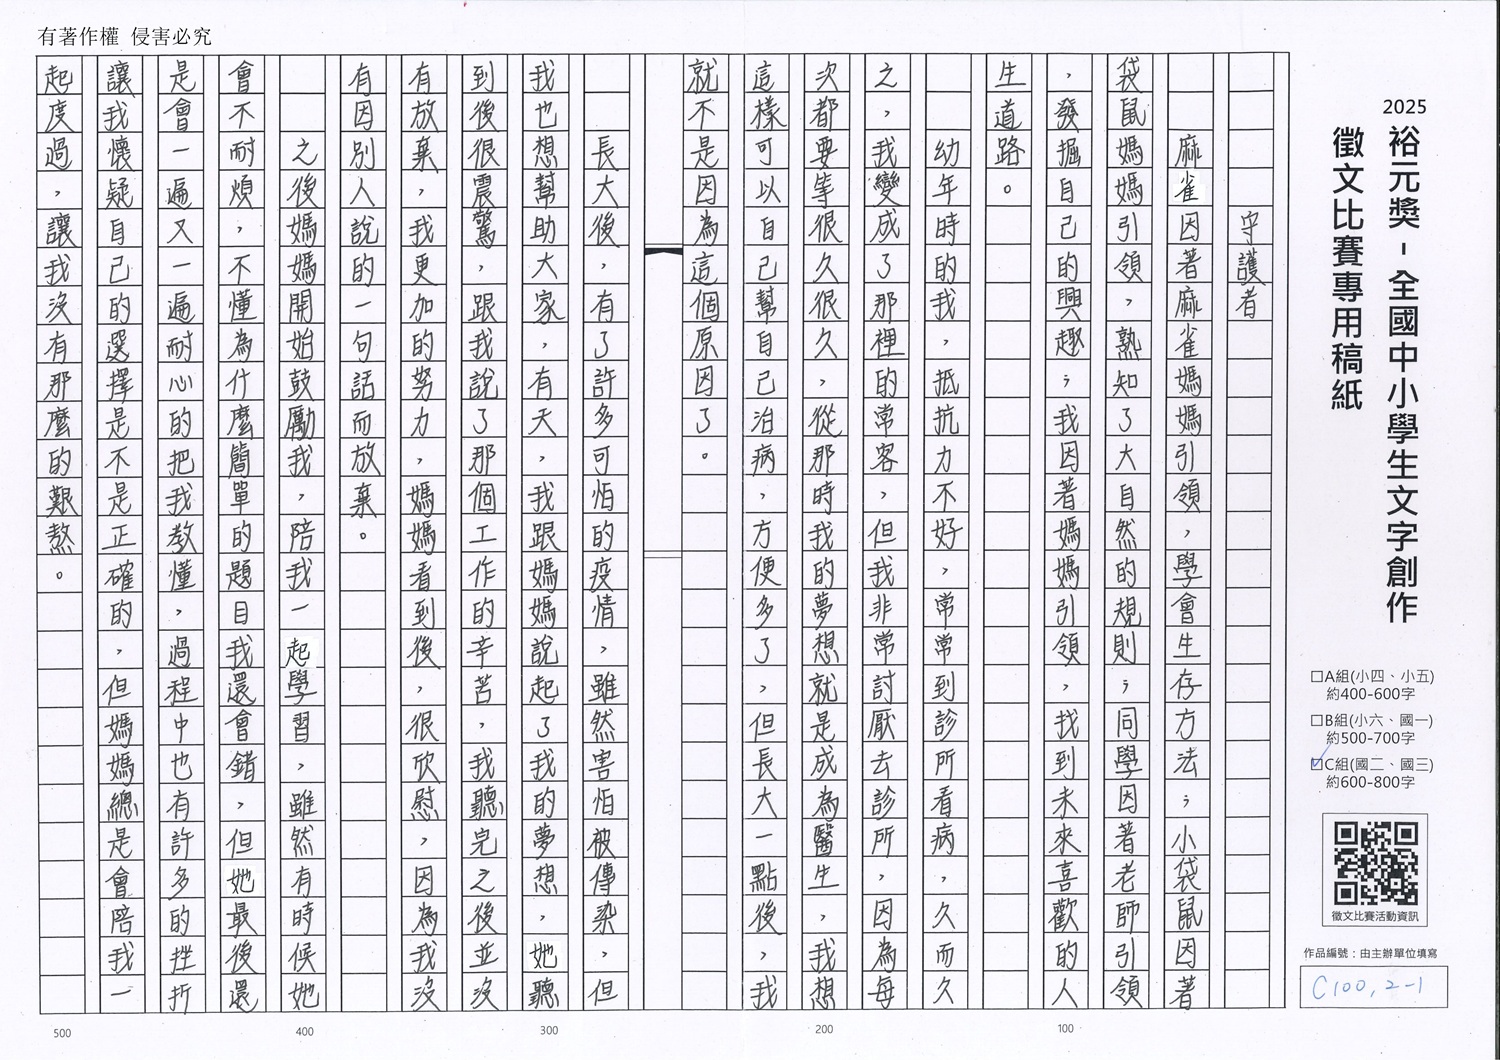 有著作權 侵害必究
2025
裕元獎-全國中小學生文字創作
徵文比賽專用稿紙
□A組(小四、小五)
約400-600字
□B組(小六、國一)
約500-700字
☑C組(國二、國三)
約600-800字
徵文比賽活動資訊
作品編號：由主辦單位填寫
C100,2-1
守護者
麻雀因著麻雀媽媽引領，學會生存方法；小袋鼠因著
袋鼠媽媽引領，熟知了大自然的規則；同學因著老師引領
，發掘自己的興趣；我因著媽媽引領，找到未來喜歡的人
生道路。
幼年時的我，抵抗力不好，常常到診所看病，久而久
之，我變成了那裡的常客，但我非常討厭去診所，因為每
次都要等很久很久，從那時我的夢想就是成為醫生，我想
這樣可以自己幫自己治病，方便多了，但長大一點後，我
就不是因為這個原因了。
長大後，有了許多可怕的疫情，雖然害怕被傳染，但
我也想幫助大家，有天，我跟媽媽說起了我的夢想，她聽
到後很震驚，跟我說了那個工作的辛苦，我聽完之後並沒
有放棄，我更加的努力，媽媽看到後，很欣慰，因為我沒
有因別人說的一句話而放棄。
之後媽媽開始鼓勵我，陪我一起學習，雖然有時候她
會不耐煩，不懂為什麼簡單的題目我還會錯，但她最後還
是會一遍又一遍耐心的把我教懂，過程中也有許多的挫折
讓我懷疑自己的選擇是不是正確的，但媽媽總是會陪我一
起度過，讓我沒有那麼的艱熬。
100
200
300
400
500